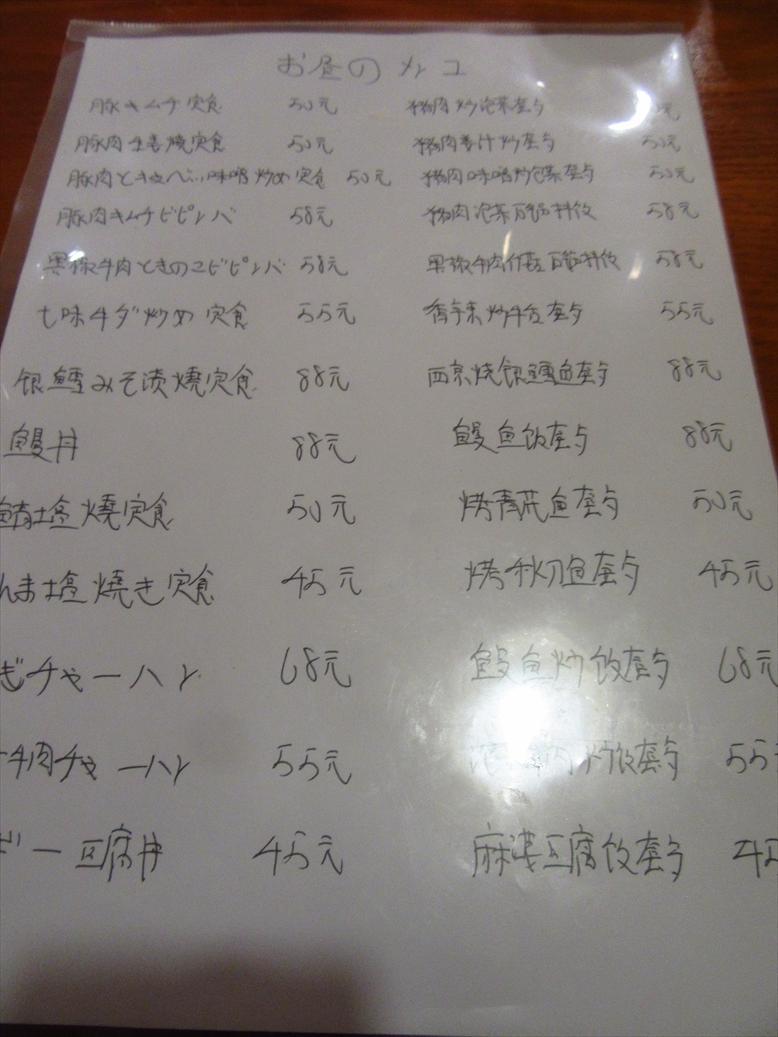 お昼のメニュー
豚キムチ定食 50元 猪肉炒泡菜套歺 元
豚肉生姜焼定食 50元 猪肉姜汁炒套歺 50元
豚肉ときゃべつ味噌炒め定食 50元 猪肉味噌炒包菜套歺 50元
豚肉キムチビビンバ 58元 猪肉泡菜石锅拌饭 58元
黒椒牛肉ときのこビビンバ 58元 黑椒牛肉什菇石锅拌饭 58元
七味牛タン炒め定食 55元 香辛末炒牛舌套歺 55元
银鳕みそ漬燒定食 88元 西京烧银鳕鱼套歺 88元
鰻丼 88元 鳗鱼饭套歺 88元
鯖塩燒定食 50元 烤青花鱼套歺 50元
んま塩燒き定食 45元 烤秋刀鱼套歺 45元
ぎチャーハン 68元 鳗鱼炒饭套歺 68元
牛肉チャーハン 55元 肉炒饭套歺 55
ボー豆腐丼 45元 麻婆豆腐饭套歺 45